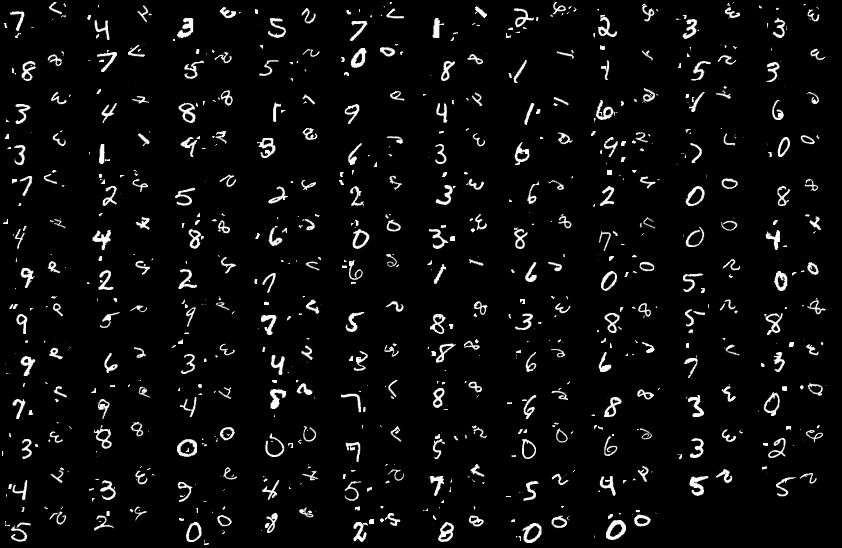 7 4 3 5 7 1 2 2 3 3
8 7 5 5 0 8 1 1 5 3
3 4 8 1 9 4 1 6 1 6
3 1 9 8 6 3 6 9 7 0
7 2 5 2 2 3 6 2 0 8
4 4 8 6 0 3 8 7 0 4
9 2 2 7 6 1 6 0 5 0
9 5 9 7 5 8 3 8 5 8
9 6 3 4 3 8 6 6 7 3
7 9 4 8 7 8 6 8 3 0
3 8 0 0 7 5 0 6 3 2
4 3 9 4 5 7 5 4 5 5
5 2 0 8 2 8 0 0